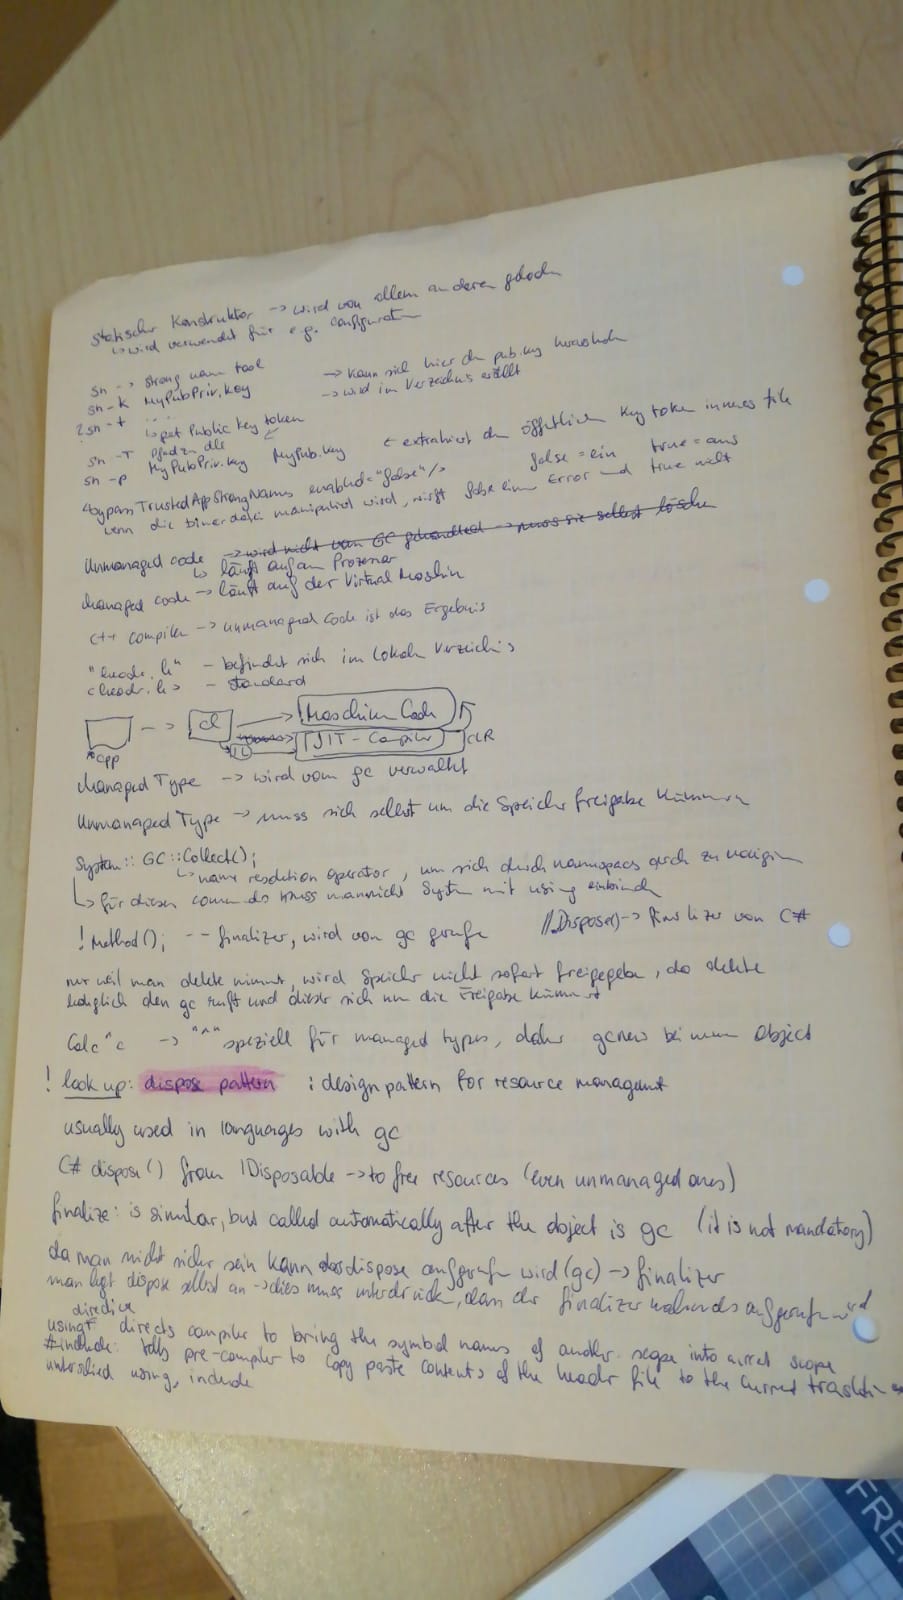 statischer Konstruktor -> wird vor allem anderen geladen
↳ wird verwendet für e.g. configuration
sn -> strong name tool
sn -k MyPubPriv.key -> kann sich hier den pub.key herausholen
-> wird im Verzeichnis erstellt
sn -t
↳ Public key token
sn -T Pfad zu dll
sn -p MyPubPriv.key MyPub.key <- extrahiert den öffentlichen Key token in neues file
<bypassTrustedAppStrongNames enabled="false"/> false = ein true = aus
wenn die binärdatei manipuliert wird, wirft false einen Error und true nicht
Unmanaged code -> wird nicht vom GC gehandled -> muss sie selbst löschen
↳ läuft auf am Prozessor
Managed code -> läuft auf der Virtual Maschin
C++ compiler -> unmanaged Code ist das Ergebnis
"header.h" - befindet sich im lokalen Verzeichnis
<header.h> - standard
App -> cl -> Maschinen Code
IL -> JIT-Compiler CLR
Managed Type -> wird vom gc verwaltet
Unmanaged Type -> muss sich selbst um die Speicher freigabe kümmern
System::GC::Collect();
↳ name resolution operator, um sich durch namespaces durch zu navigieren
↳ für diesen command muss man nicht System mit using einbinden
!Method(); -- finalizer, wird von gc gerufen //Dispose() -> finalizer von C#
nur weil man delete nimmt, wird Speicher nicht sofort freigegeben, da delete
lediglich den gc ruft und dieser sich um die Freigabe kümmert
Calc^c -> "^" speziell für managed types, daher gcnew bei neuem Object
! look up: dispose pattern : design pattern for resource managemt
usually used in languages with gc
C# dispose() from IDisposable -> to free resources (even unmanaged ones)
finalize: is similar, but called automatically after the object is gc (it is not mandatory)
da man nicht sicher sein kann dass dispose aufgerufen wird (gc) -> finalizer
man legt dispose selbst an -> dies muss unterdrücken, dass der finalizer nochmals aufgerufen wird
directive
using directs compiler to bring the symbol names of another scope into current scope
#include: tells pre-compiler to copy paste contents of the header file to the current
unterschied using, include